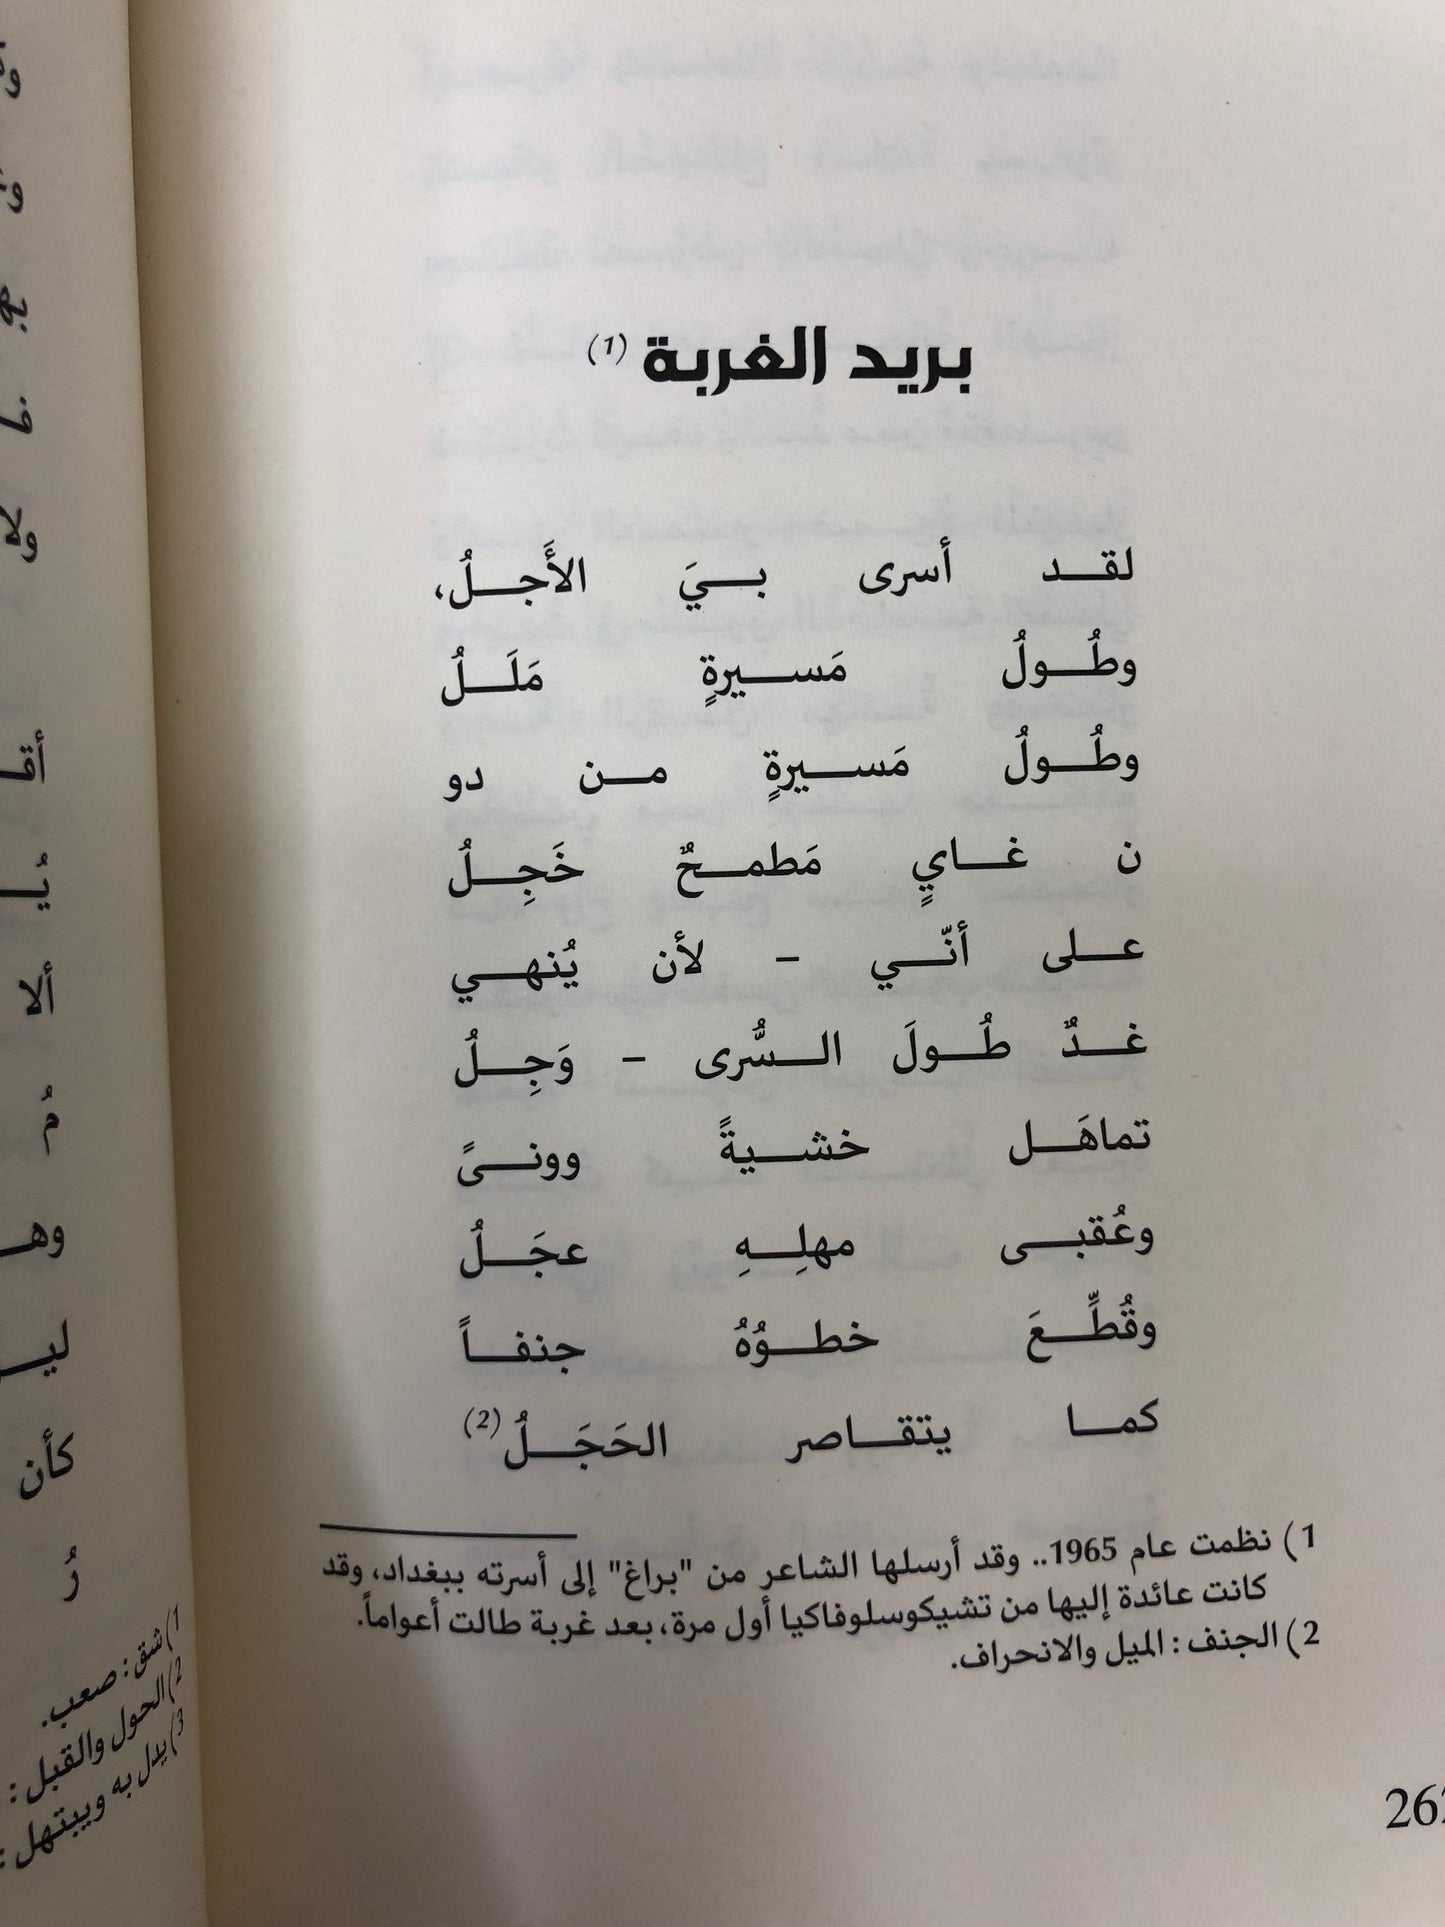 بريد الغربة (1)
لقد أسرى بيَ الأَجلُ،
وطُولُ مَسيرةٍ مَلَلُ
وطُولُ مَسيرةٍ من دو
ن غايٍ مَطمحٌ خَجِلُ
على أنّي – لأن يُنهي
غدٌ طُولَ السُّرى – وَجِلُ
تماهَل خشيةً وونىً
وعُقبى مهلِهِ عجَلُ
وقُطِّعَ خطوُهُ جنفاً
كما يتقاصر الحَجَلُ (2)
1) نظمت عام 1965.. وقد أرسلها الشاعر من "براغ" إلى أسرته ببغداد، وقد
كانت عائدة إليها من تشيكوسلوفاكيا أول مرة، بعد غربة طالت أعواماً.
2) الجنف : الميل والانحراف.
أقا
يُا
ألا
مُ
وهـ
ليـ
كأن
رُ
1) شق : صعب.
2) الحول والقبل :
3) يدل به ويبتهل :